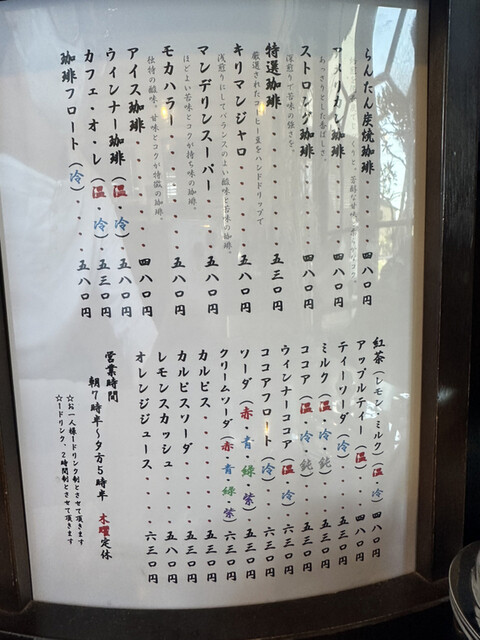 らんたん炭焼珈琲・・・・・四八〇円
アメリカン珈琲・・・・・四八〇円
あっさりとした香ばしさ。
ストロング珈琲・・・・・四八〇円
深煎りで苦味の強さを。
特選珈琲・・・・・・・五三〇円
厳選されたコーヒー豆をハンドドリップで
キリマンジャロ・・・・・五八〇円
浅煎りにしてバランスのよい酸味と苦味の珈琲。
マンデリンスーパー・・・・五八〇円
ほどよい苦味とコクが持ち味の珈琲。
モカハラー・・・・・・五八〇円
独特の酸味、甘味とコクが特徴の珈琲。
アイス珈琲・・・・・・四八〇円
ウィンナー珈琲(温・冷)・五八〇円
カフェ・オ・レ(温・冷)・五三〇円
珈琲フロート(冷)・・・・五八〇円
紅茶(レモン・ミルク)(温・冷)四八〇円
アップルティー(温)・・・四八〇円
ティーソーダ(冷)・・・・五三〇円
ミルク(温・冷・純)・・・五三〇円
ココア(温・冷・純)・・・五三〇円
ウィンナーココア(温・冷)六三〇円
ココアフロート(冷)・・・六三〇円
ソーダ(赤・青・緑・紫)・五三〇円
クリームソーダ(赤・青・緑・紫)六三〇円
カルピス・・・・・・・五三〇円
カルピスソーダ・・・・・五三〇円
レモンスカッシュ・・・・五八〇円
オレンジジュース・・・・六三〇円
営業時間
朝7時半～夕方5時半 木曜定休
☆お一人様1ドリンク制とさせて頂きます
☆1ドリンク、2時間制とさせて頂きます